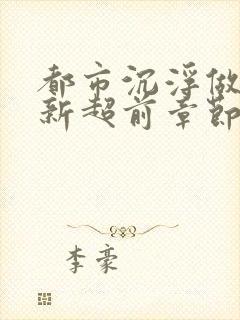 都市沉浮做
新超前章節
李豪